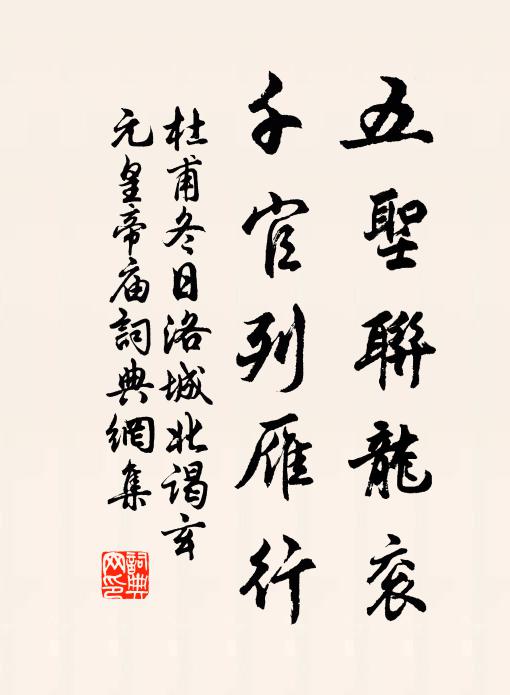 五聖聯龍衮
千官列雁行
杜甫冬日洛城北謁玄
元皇帝庙詞典網集
詞典網印